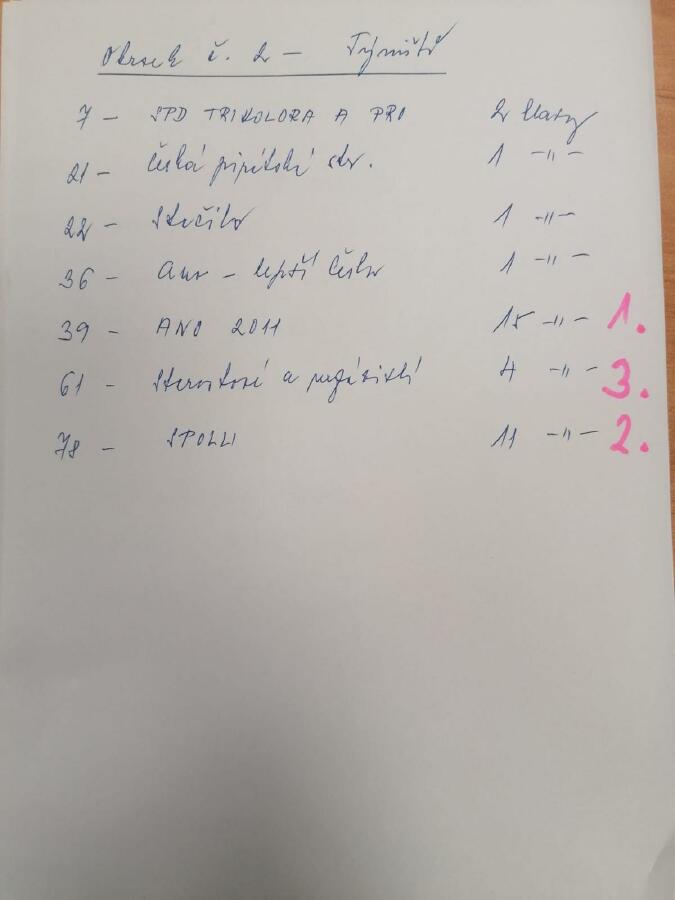 Okrsek č. 2 - Týniště
7 - SPD TRIKOLORA A PRO 2 hlasy
21 - Česká pirátská str. 1 -"-
22 - Stačilo 1 -"-
36 - Ano - lepší Česko 1 -"-
39 - ANO 2011 15 -"- 1.
61 - Starostové a nezávislí 4 -"- 3.
78 - SPOLU 11 -"- 2.